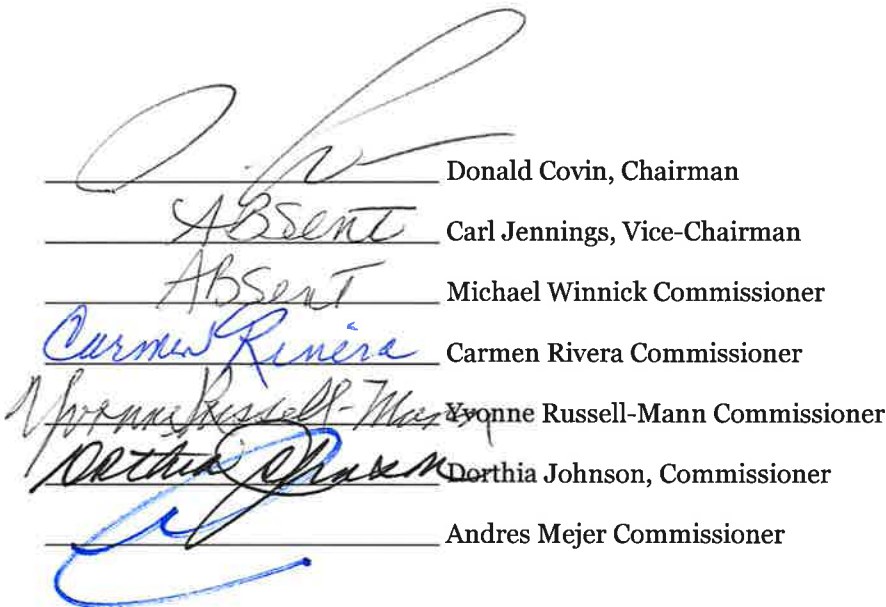 Donald Covin, Chairman
ABSent Carl Jennings, Vice-Chairman
ABSent Michael Winnick Commissioner
Carmen Rivera Carmen Rivera Commissioner
Yvonne Russell-Mann Yvonne Russell-Mann Commissioner
Dorthia Johnson Dorthia Johnson, Commissioner
Andres Mejer Commissioner